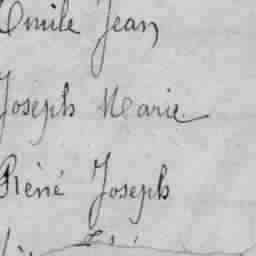 Emile Jean
Joseph Marie
Réné Joseph